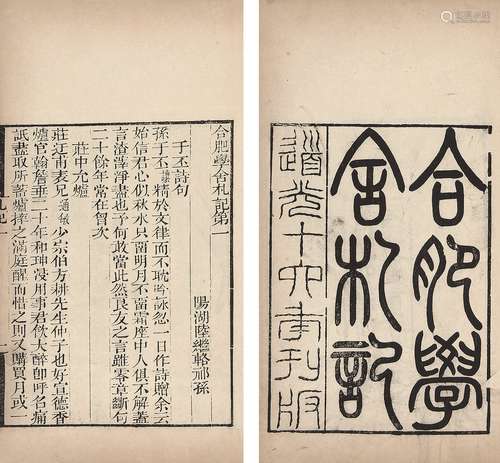 合肥學
舍札記
道光十六年刊版
合肥學舍札記第一
陽湖陸繼輅祁孫
于丕詩句
孫于丕精於文律而不耽吟詠忽一日作詩贈余云
始信君心似秋水只留明月不留霜座中人俱不解蓋
言渣滓淨盡也予何敢當此然良友之言雖零章斷句
二十餘年常在胷次
莊中允爐
莊迂甫表兄通敏少宗伯方耕先生仲子也好宣德香
爐官翰詹垂二十年和珅浸用事君飲大醉卽呼名痛
詆盡取所蓄爐捽之滿庭醒而惜之則又購買月或一